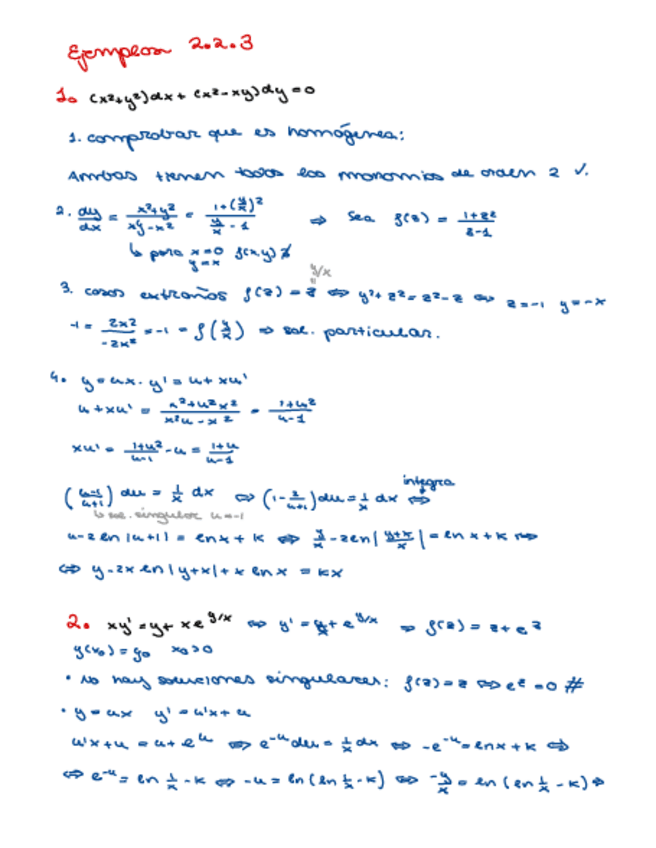 Ejemplos 2.2.3
1. (x²+y²)dx + (x²-xy)dy = 0
1. comprobar que es homógenea:
Ambas tienen todos los monomios de orden 2 ✓.
2. dy/dx = (x²+y²)/(xy-x²) = (1+(y/x)²)/(y/x - 1) ⇒ Sea f(z) = (1+z²)/(z-1)
↳ para x=0 y=x f(x,y) ∄
y/x
3. casos extraños f(z) = z ⇔ y²+z² = z²-z ⇔ z=-1 y=-x
-1 = 2x²/-2x² = -1 = f(y/x) ⇒ sol. particular.
4. y=ux. y'=u+xu'
u+xu' = (x²+u²x²)/(x²u-x²) = (1+u²)/(u-1)
xu' = (1+u²)/(u-1) - u = (1+u)/(u-1)
integra
((u-1)/(u+1)) du = 1/x dx ⇔ (1 - 2/(u+1)) du = 1/x dx ⇔
↳ sol. singular u=-1
u-2 ln|u+1| = ln x + k ⇔ y/x - 2 ln|(y+x)/x| = ln x + k ⇔
⇔ y-2x ln|y+x| + x ln x = kx
2. xy' = y + x e^(y/x) ⇔ y' = y/x + e^(y/x) ⇒ f(z) = z + e^z
y(x₀) = y₀ x₀>0
• no hay soluciones singulares: f(z) = z ⇔ e^z = 0 #
• y=ux y'=u'x+u
u'x+u = u+e^u ⇔ e^(-u) du = 1/x dx ⇔ -e^(-u) = ln x + k ⇔
⇔ e^(-u) = ln 1/x - k ⇔ -u = ln(ln 1/x - k) ⇔ -y/x = ln(ln 1/x - k) ⇔